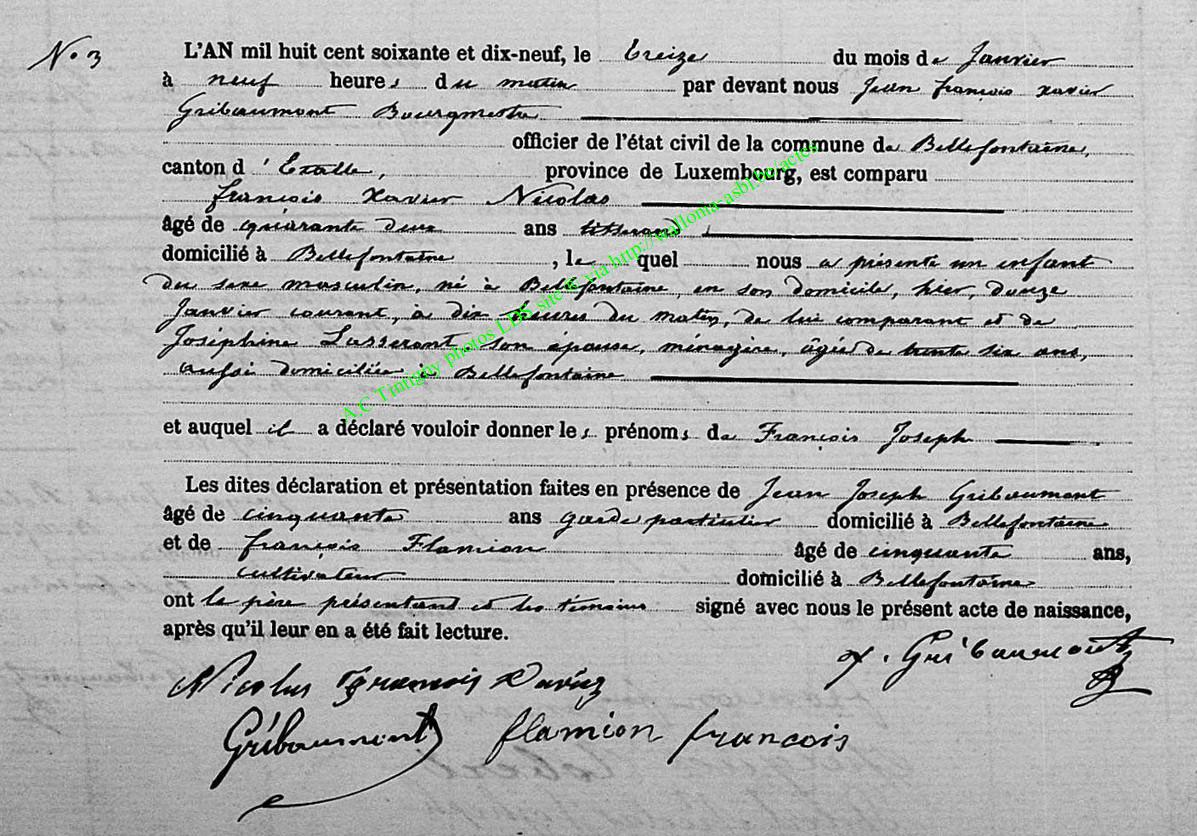 No 3
L'AN mil huit cent soixante et dix-neuf, le treize du mois de Janvier
à neuf heures du matin par devant nous Jean François Xavier
Gribaumont Bourgmestre
officier de l'état civil de la commune de Bellefontaine,
canton d'Etalle, province de Luxembourg, est comparu
François Xavier Nicolas
âgé de quarante deux ans tisserand
domicilié à Bellefontaine, lequel nous a présenté un enfant
du sexe masculin, né à Bellefontaine, en son domicile, hier, douze
Janvier courant, à dix heures du matin, de lui comparant et de
Joséphine Lasserant son épouse, ménagère, âgée de trente six ans,
aussi domiciliée à Bellefontaine
et auquel il a déclaré vouloir donner les prénoms de François Joseph
Les dites déclaration et présentation faites en présence de Jean Joseph Gribaumont
âgé de cinquante ans garde particulier domicilié à Bellefontaine
et de François Flamion âgé de cinquante ans,
cultivateur domicilié à Bellefontaine
ont le père présentant et les témoins signé avec nous le présent acte de naissance,
après qu'il leur en a été fait lecture.
x. Gribaumont
Nicolas François Xavier
Gribaumont flamion francois
A.C Tintigny photos LDS site via http://wallonia-asbl.eu/actes